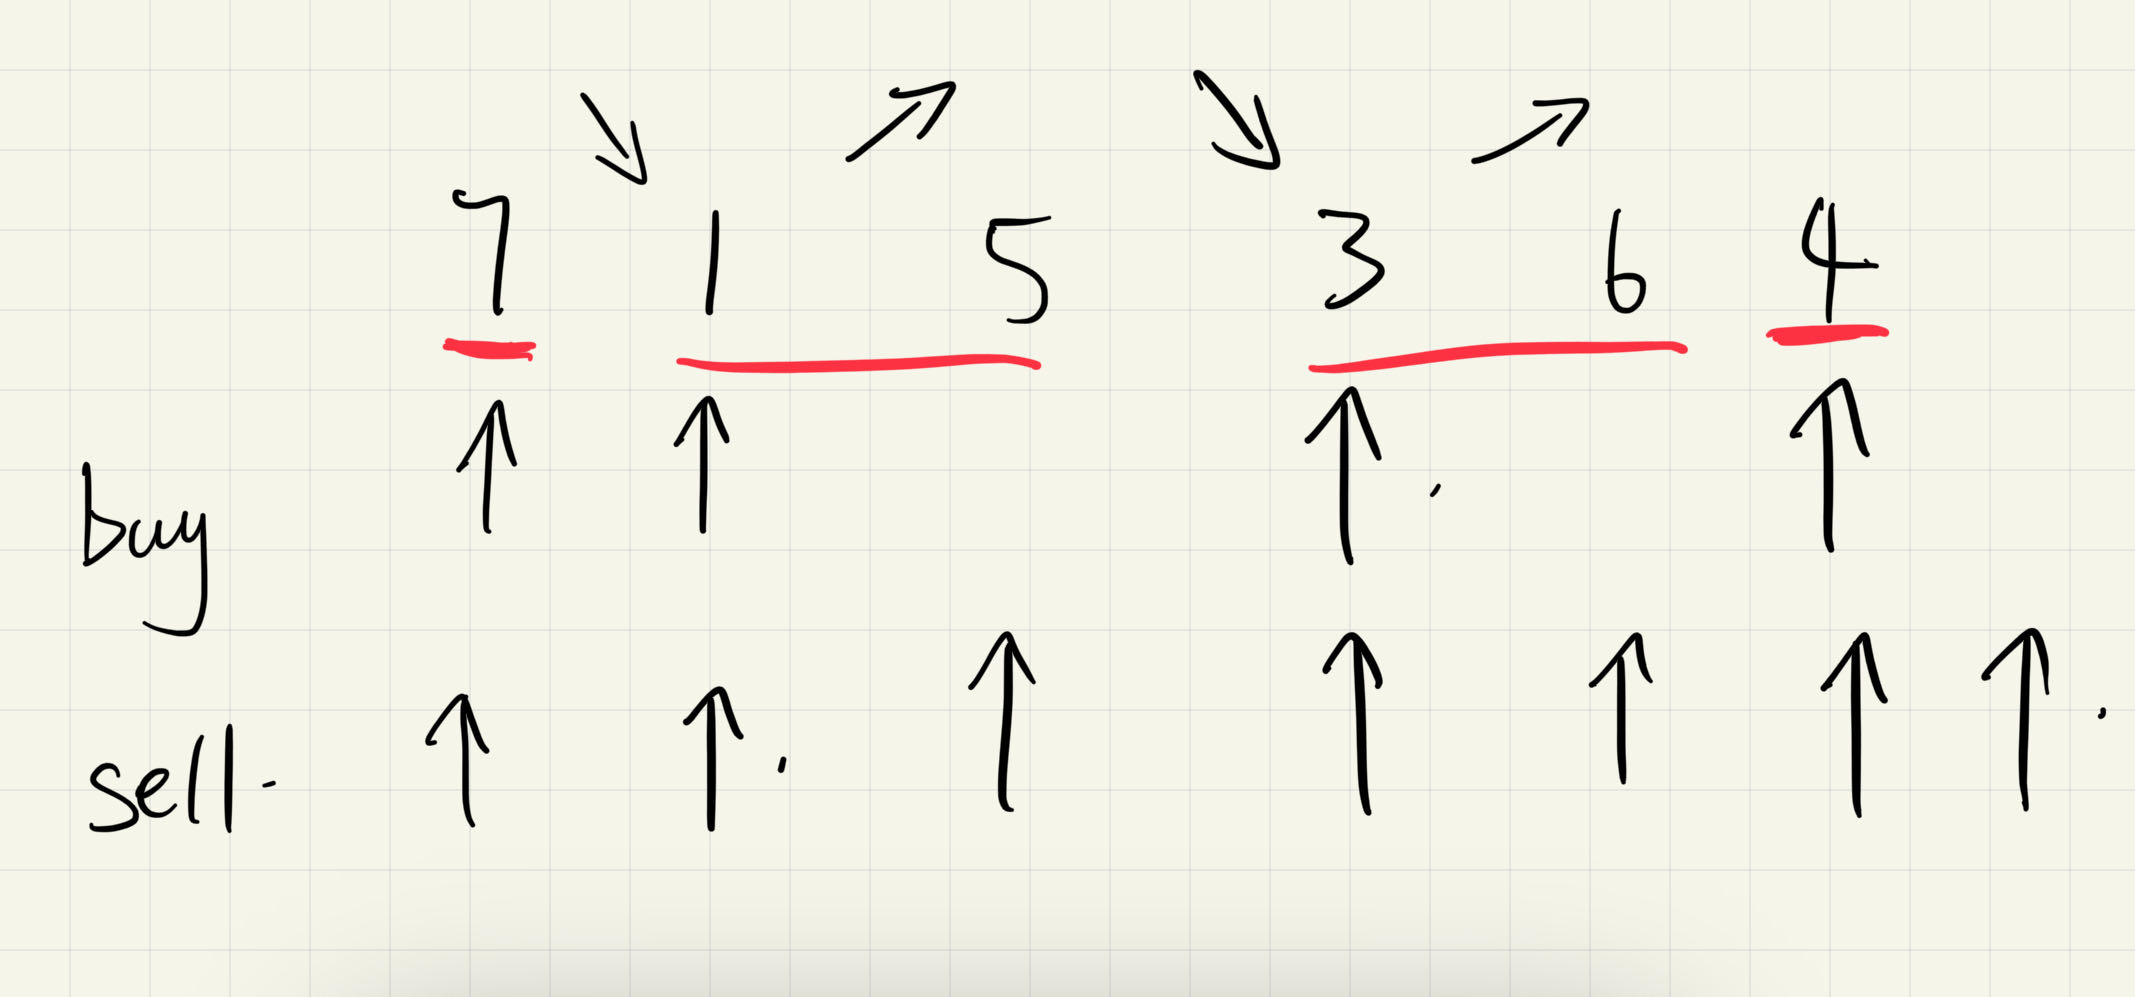 7 1 5 3 6 4
buy
sell